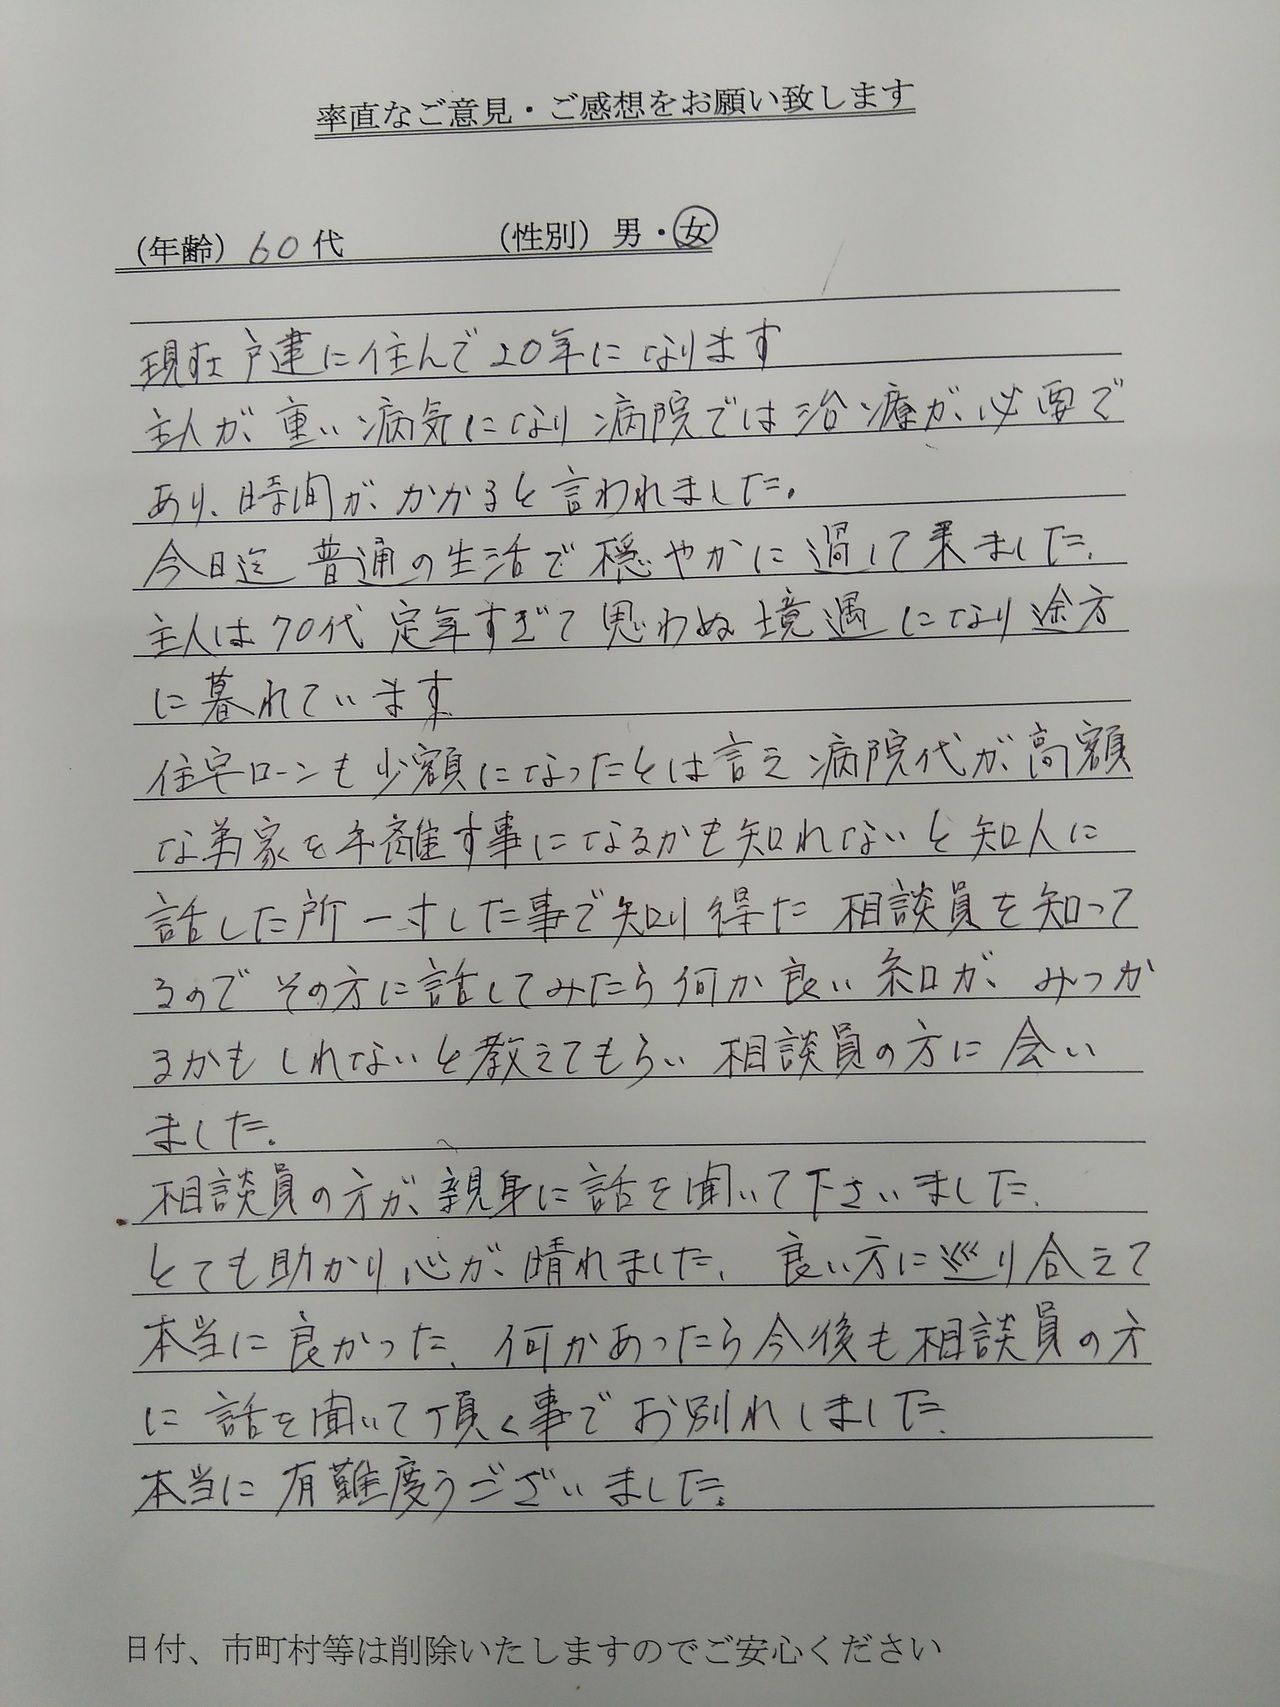 率直なご意見・ご感想をお願い致します
（年齢）60代　（性別）男・女
現在戸建に住んで20年になります
主人が重い病気になり病院では治療が必要で
あり、時間がかかると言われました。
今日迄普通の生活で穏やかに過して来ました。
主人は70代定年すぎて思わぬ境遇になり途方
に暮れています
住宅ローンも少額になったとは言え病院代が高額
な為家を手離す事になるかも知れないと知人に
話した所一寸した事で知り得た相談員を知って
るのでその方に話してみたら何か良い糸口がみつか
るかもしれないと教えてもらい相談員の方に会い
ました。
相談員の方が親身に話を聞いて下さいました。
とても助かり心が晴れました。良い方に巡り合えて
本当に良かった。何かあったら今後も相談員の方
に話を聞いて頂く事でお別れしました。
本当に有難度うございました。
日付、市町村等は削除いたしますのでご安心ください